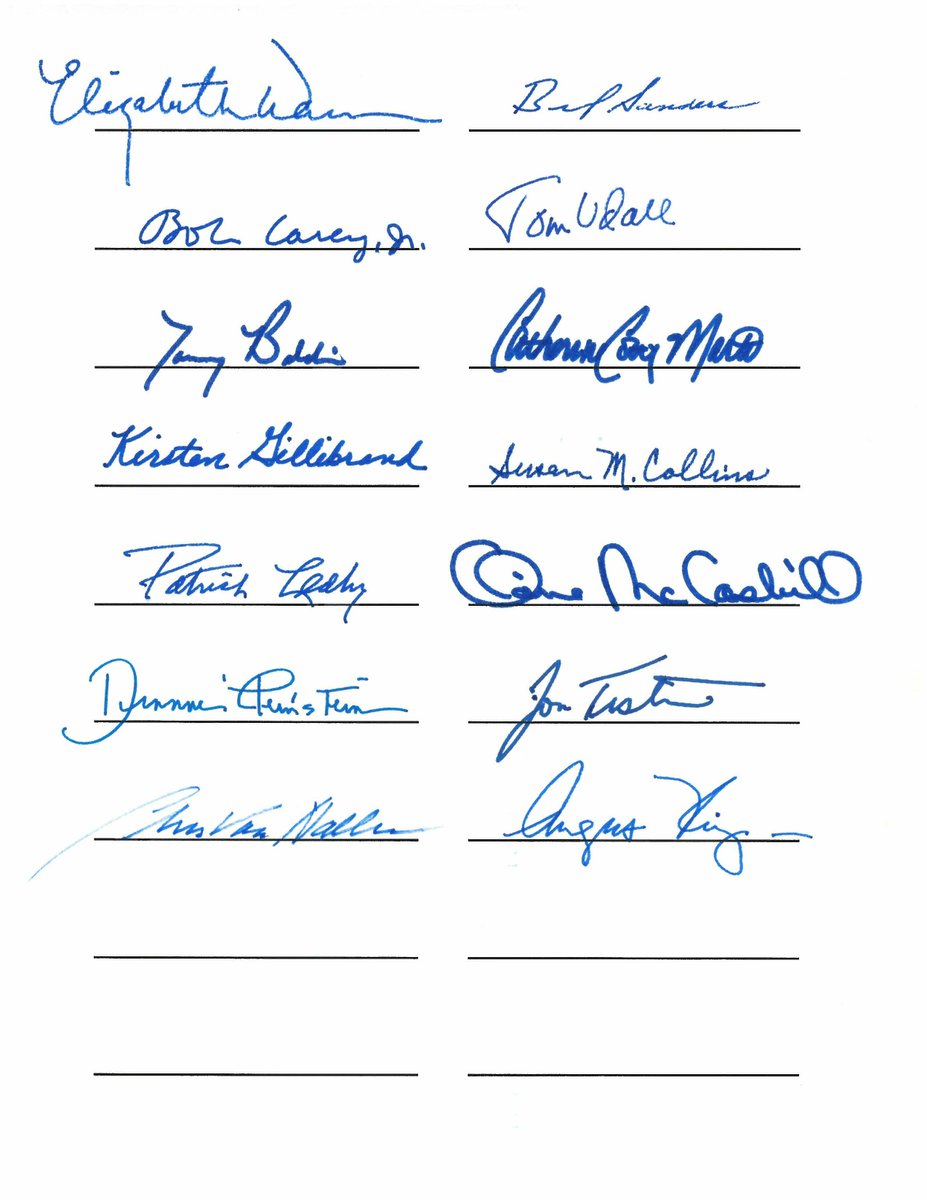 Elizabeth Warren
Bernard Sanders
Bob Casey, Jr.
Tom Udall
Tammy Baldwin
Catherine Cortez Masto
Kirsten Gillibrand
Susan M. Collins
Patrick Leahy
Claire McCaskill
Dianne Feinstein
Jon Tester
Chris Van Hollen
Angus King